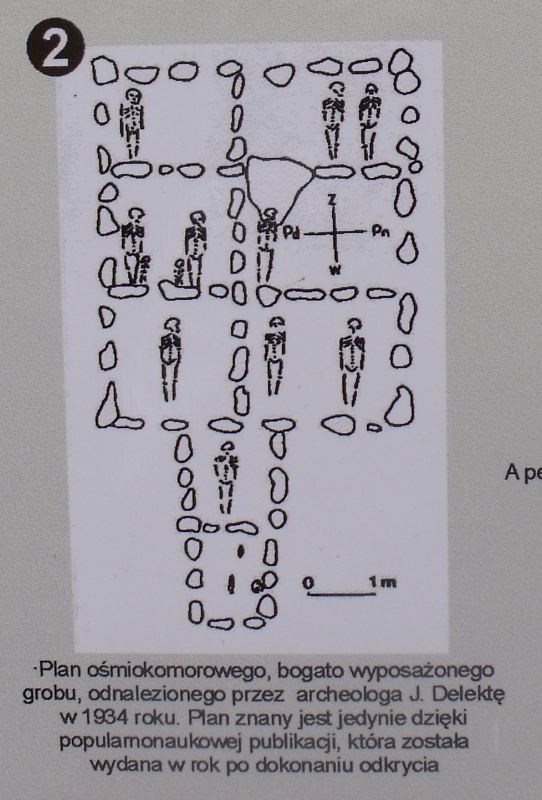 2
z
Pd Pn
w
0 1 m
A pe
·Plan ośmiokomorowego, bogato wyposażonego
grobu, odnalezionego przez archeologa J. Delektę
w 1934 roku. Plan znany jest jedynie dzięki
popularnonaukowej publikacji, która została
wydana w rok po dokonaniu odkrycia